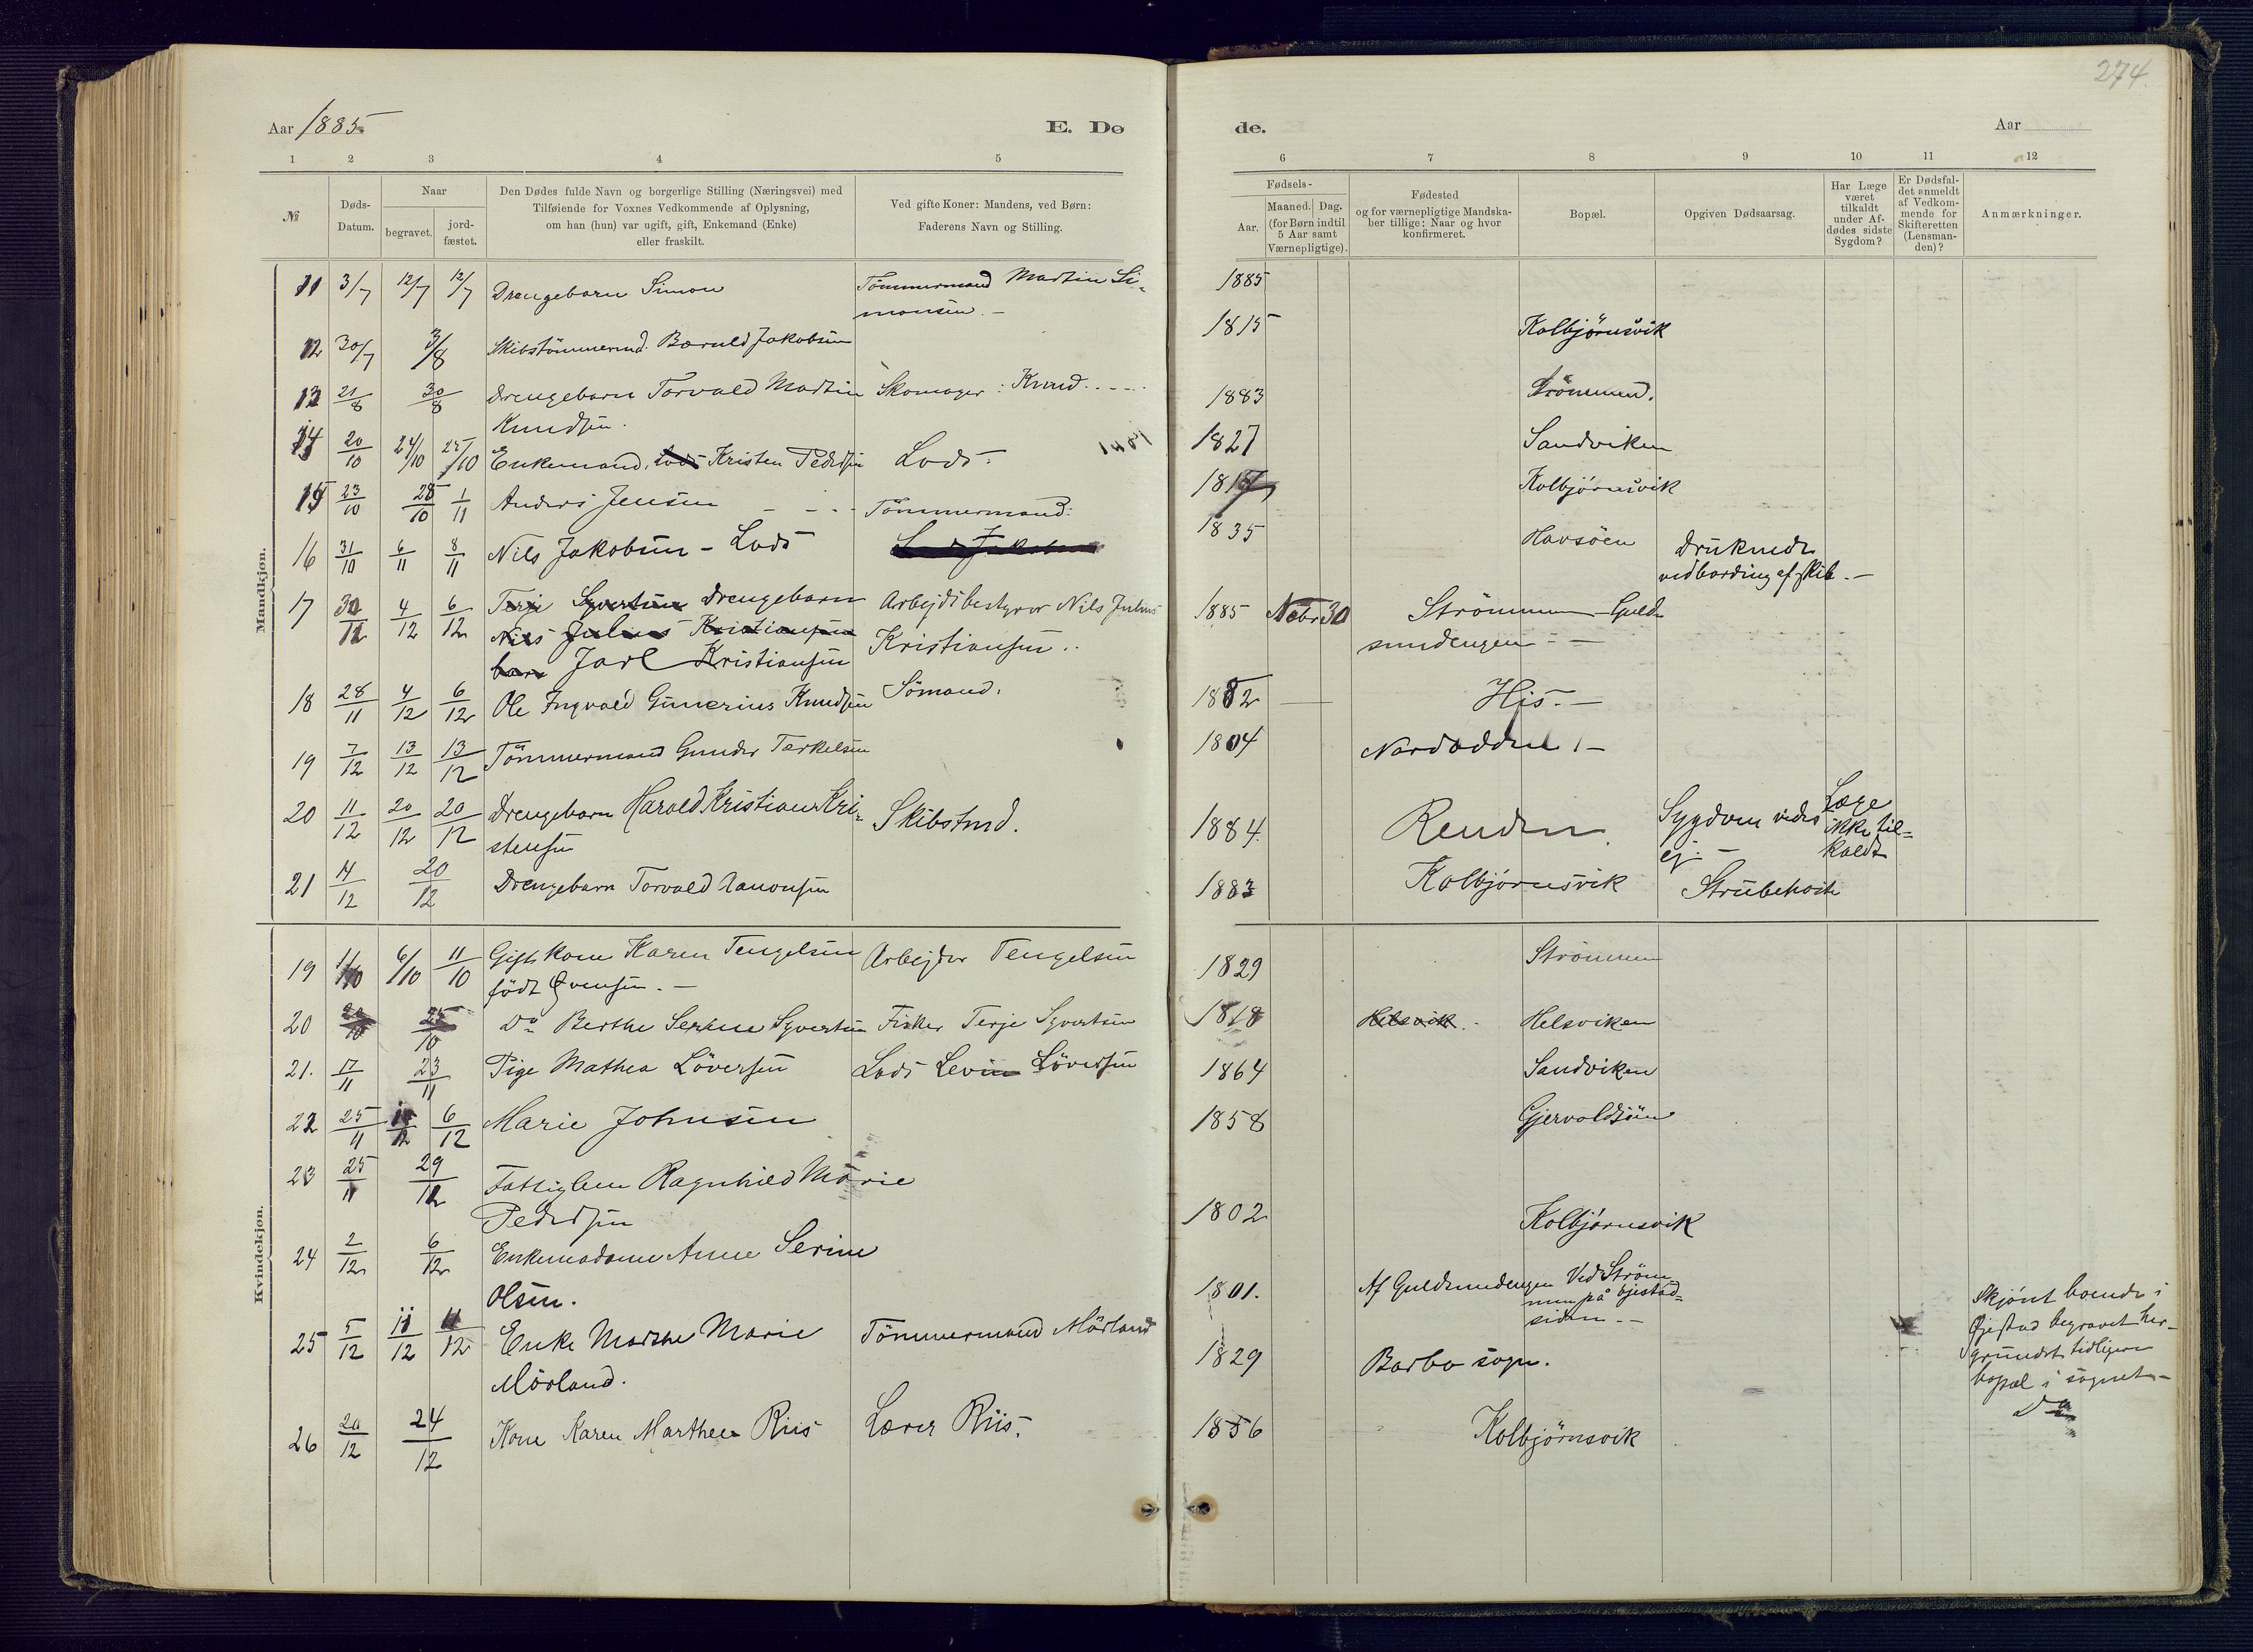 274.
Aar 1885.
E. Dø
de.
Aar
1 2 3 4 5
6 7 8 9 10 11 12
№
Døds-
Datum.
Naar
begravet.
jord-
fæstet.
Den Dødes fulde Navn og borgerlige Stilling (Næringsvei) med
Tilføiende for Voxnes Vedkommende af Oplysning,
om han (hun) var ugift, gift, Enkemand (Enke)
eller fraskilt.
Ved gifte Koner: Mandens, ved Børn:
Faderens Navn og Stilling.
Fødsels-
Aar.
Maaned. Dag.
(for Børn indtil
5 Aar samt
Værnepligtige).
Fødested
og for værnepligtige Mandska-
ber tillige: Naar og hvor
konfirmeret.
Bopæl.
Opgiven Dødsaarsag.
Har Læge
været
tilkaldt
under Af-
dødes sidste
Sygdom?
Er Dødsfal-
det anmeldt
af Vedkom-
mende for
Skifteretten
(Lensman-
den)?
Anmærkninger.
Mandkjøn.
11 3/7 12/7 12/7 Drengebarn Simon Tömmermand Martin Si-
monsen. - 1885
12 30/7 3/8 Skibstömmermd. Jakobsen 1815 Kolbjörnsvik
13 21/8 30/8 Drengebarn Torvald Martin Skomager: Knud
Knudsen. 1883 Strömmen.
14 20/10 24/10 25/10 Enkemand, Lods Kristen Pedersen Lods. 1827 Sandviken
15 23/10 28/10 1/11 Anders Jensen Tömmermand. Kolbjörnsvik
16 31/10 6/11 8/11 Nils Jakobsen - Lods 1835 Havsöen Druknede
ved bording af skib. -
17 4/12 6/12 Terje Syvertsen Drengebarn Arbejdsbestyrer Nils Julius 1885 30 Strömmen - Guld
Nils Julius Kristiansen Kristiansen.. smedengen
barn Jarl Kristiansen
18 28/11 4/12 6/12 Ole Ingvald Gunerius Knudsen Sömand. 1882 His. -
19 7/12 13/12 13/12 Tömmermand Gunder Terkelsen 1804 Nordodden
20 11/12 20/12 20/12 Drengebarn Harald Kristian Kri- Skibstmd. 1884. Renden. Sygdom vides
stensen ej. - Læge
ikke til-
kaldt
21 14/12 20/12 Drengebarn Torvald Aanonsen 1883 Kolbjörnsvik Strubehoste
Kvindekjøn.
19 1/10 6/10 11/10 Gift kone Karen Tengelsen Arbejder Tengelsen 1829 Strömmen
födt Evensen. -
20 20/10 25/10 Do Berthe Serine Syvertsen Fisker Terje Syvertsen 1818 Helsvik. Helsviken
21. 17/11 23/11 Pige Mathea Löversen Lods Levin Löversen 1864 Sandviken
22 25/11 6/12 Marie Johnsen 1858 Gjervoldsöen
23 25/11 29/12 Fattiglem Ragnhild Marie
Pedersen 1802 Kolbjörnsvik
24 2/12 6/12 Enkemadame Anne Serine
Olsen. 1801. Af Guldsmedengen Ved Ström-
men på Öjestad-
siden. -
Skjönt boende i
Öjestad begravet her
grundet tidligere
bopæl i sognet -
25 5/12 11/12 11/12 Enke Marthe Marie Tömmermand Mörland 1829 Barbo sogn.
Mörland.
Do
26 20/12 24/12 Kone Karen Marthea Riis Lærer Riis. 1856 Kolbjörnsvik